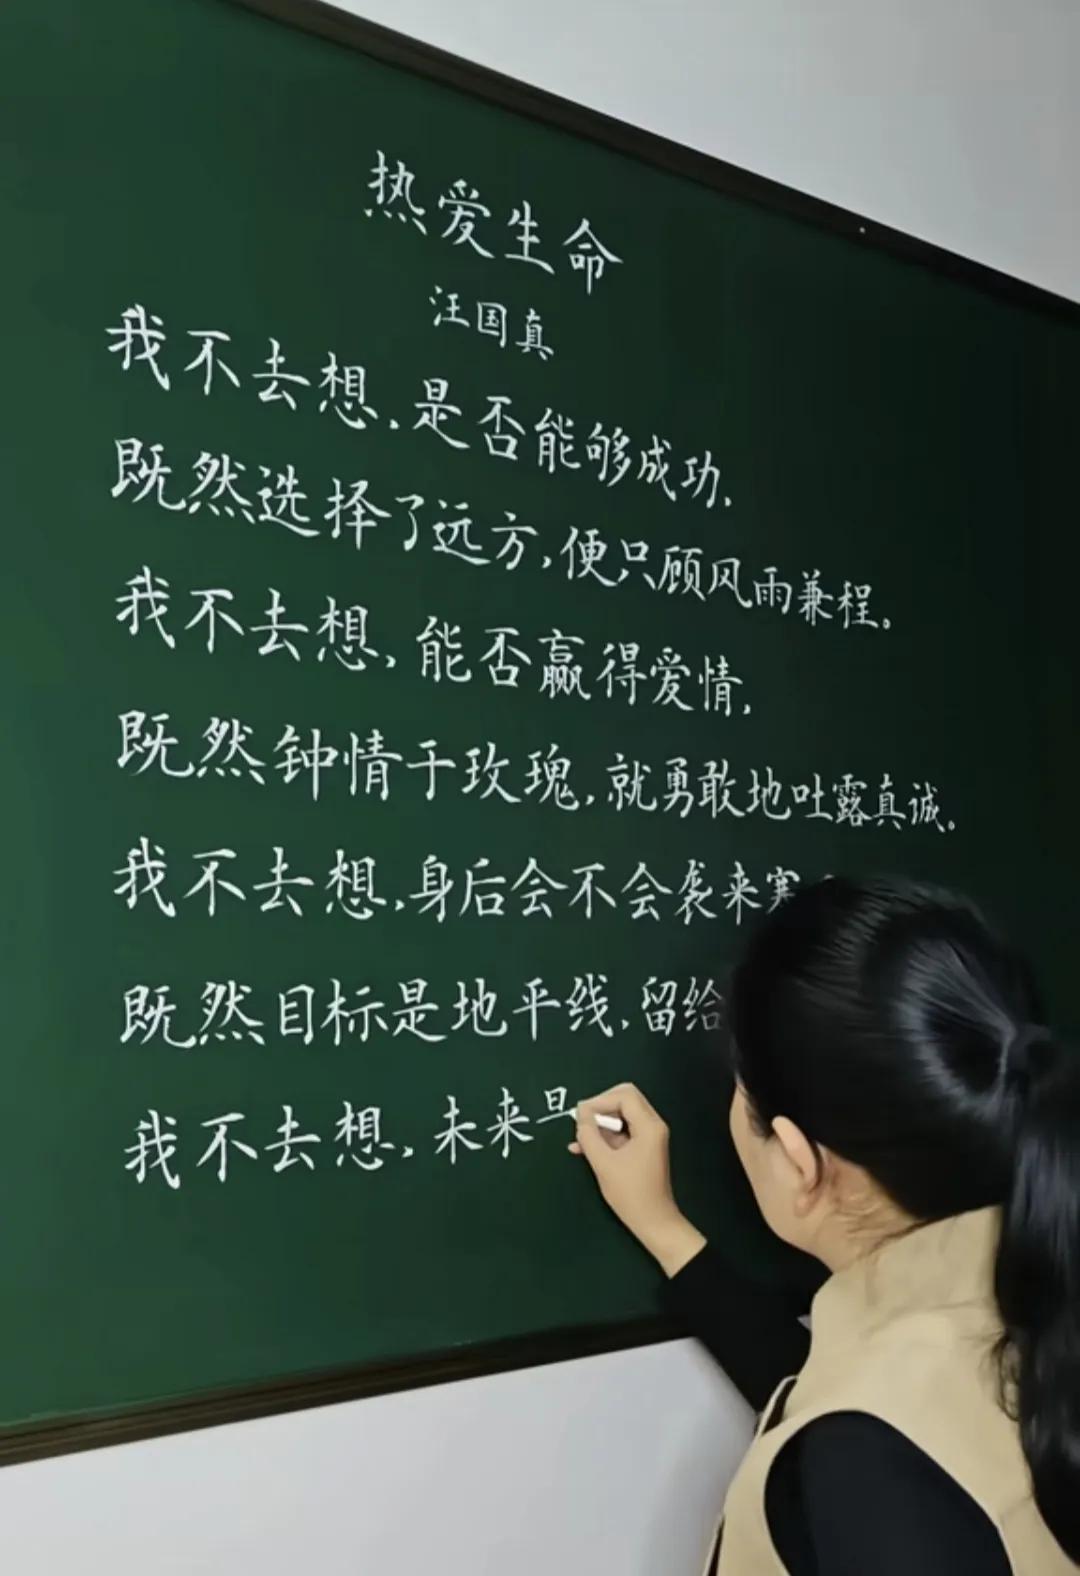 热爱生命
汪国真
我不去想,是否能够成功,
既然选择了远方,便只顾风雨兼程。
我不去想,能否赢得爱情,
既然钟情于玫瑰,就勇敢地吐露真诚。
我不去想,身后会不会袭来寒
既然目标是地平线,留给
我不去想,未来